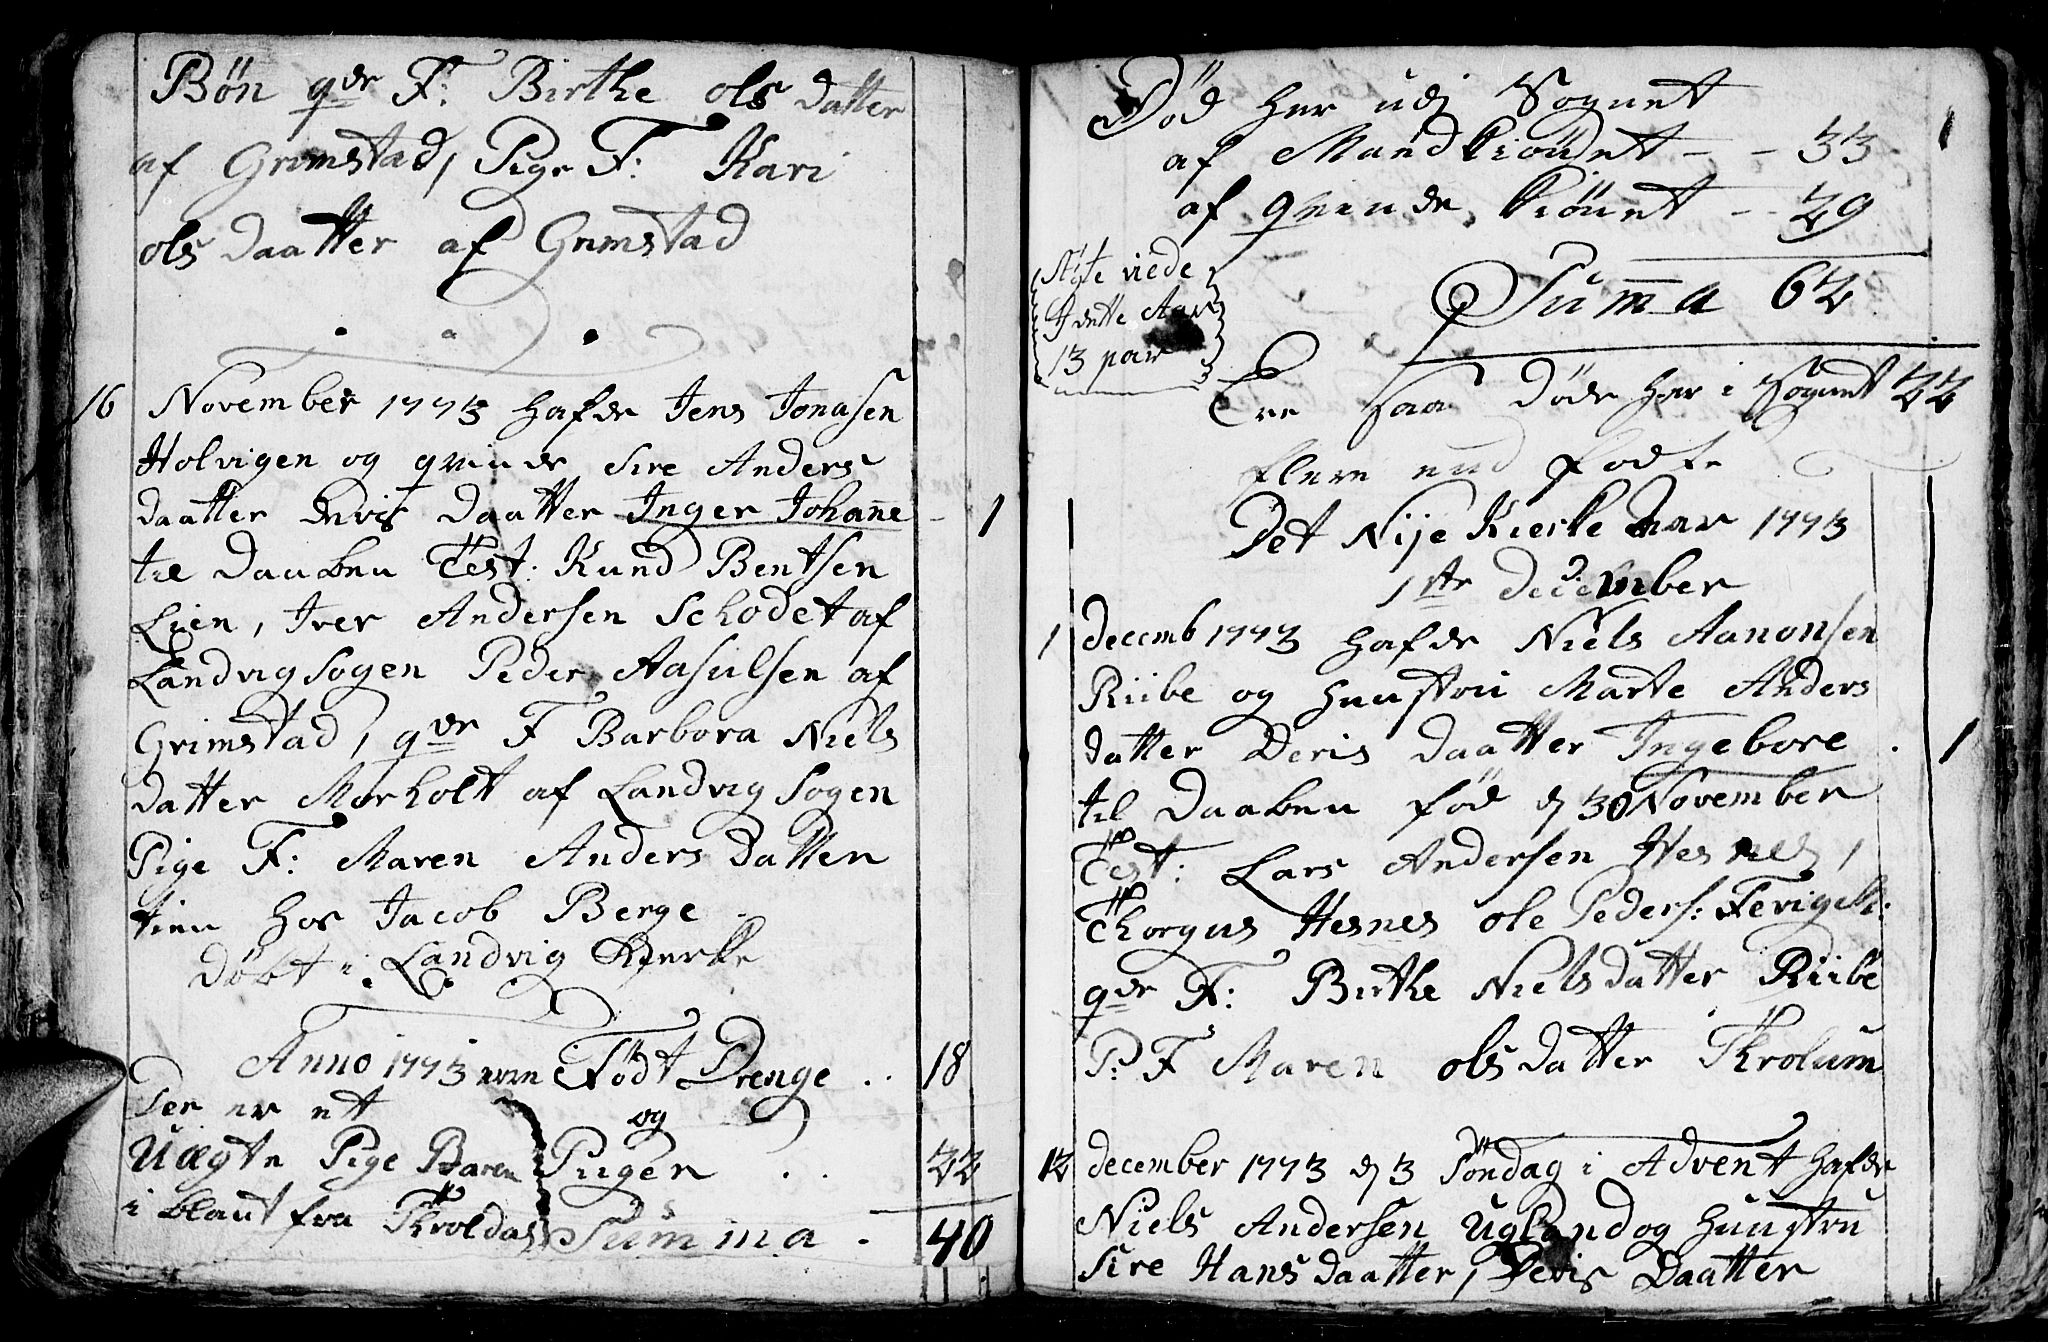 Bøn qdr F: Birthe ols datter
af Grimstad, Pige F: Kari
ols daatter af Grimstad
16 November 1773 hafde Jens Jonasen
Holvigen og qvinde Sire Anders
daatter deris daatter Inger Johane - 1
til Daaben Test: Knud Bentsen
Lien, Iver Andersen Schodet af
Landvig Sogen Peder Aasulsen af
Grimstad, qvr F Barbora Niels
datter Morholt af Landvig Sogen
Pige F: Maren Anders datter
tien hos Jacob Berge
døbt i Landvig Kierke
Anno 1773 ere Født Drenge .. 18
Der er et og
Uægte Pige Baren Piiger .. 22
i blant fra Throldas Summa . 40
Død her udj Sognet
af Mandkiønet - - 33
af qvinde kiønet - - 29
Summa 62
Ægte viede
I dette Aar
13 par
Ere saa døde her i Sognet 22
flere end fødte
Det Nije Kierke Aar 1773
1ste December
1 decemb 1773 hafde Niels Aanonsen
Riibe og hustru Marte Anders
datter Deris daatter Ingebore . 1
til Daaben fød d 30 November
Test: Lars Andersen Hesnes,
Thorgus Hesnes ole Peders: Fevig
qdr F: Birthe Niels datter Riibe
P: F Maren ols datter Throlum
12 december 1773 d 3 Søndag i Advent hafde
Niels Andersen Ugland og hustru
Sire Hans daatter, Deris Daatter